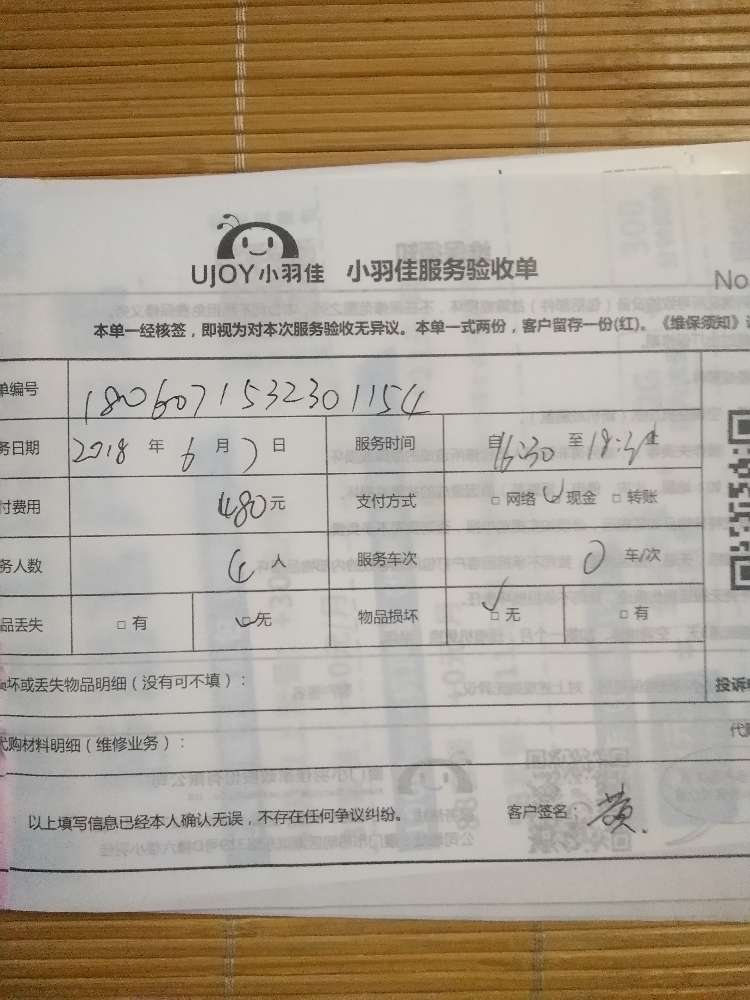 UJOY小羽佳 小羽佳服务验收单
No
本单一经核签，即视为对本次服务验收无异议。本单一式两份，客户留存一份(红)。《维保须知》
单编号 1806071532301154
务日期 2018 年 6 月 7 日 服务时间 自16:30 至
付费用 480元 支付方式 □ 网络 □ 现金 □ 转账
务人数 4 人 服务车次 0 车/次
品丢失 □ 有 □ 无 物品损坏 □ 无 □ 有
坏或丢失物品明细（没有可不填）：
投诉
代购材料明细（维修业务）：
代
以上填写信息已经本人确认无误，不存在任何争议纠纷。 客户签名：黄